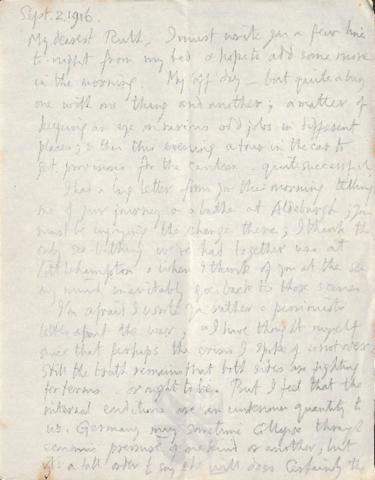 Sept. 2. 1916.
My dearest Ruth, I must write you a few lines
to-night from my bed & hope to add some more
in the morning. My off day – but quite a busy
one with one thing and another; a matter of
keeping an eye on various odd jobs in different
places; & then this evening a tour in the car to
get provisions for the canteen – quite successful.
I had a long letter from you this morning telling
me of your journey & a bathe at Aldeburgh; you
must be enjoying the change there; I think the
only sea bathing we've had together was at
Littlehampton & when I think of you at the sea
my mind inevitably goes back to those scenes.
I'm afraid I wrote you rather a pessimistic
letter about the war & I have thought myself
since that perhaps the crisis I spoke of is not over.
Still the truth remains that both sides are fighting
for terms or ought to be. But I feel that the
internal conditions are an unknown quantity to
us. Germany may sometime collapse through
economic pressure of one kind or another, but
it's a tall order to say she will does. Certainly the